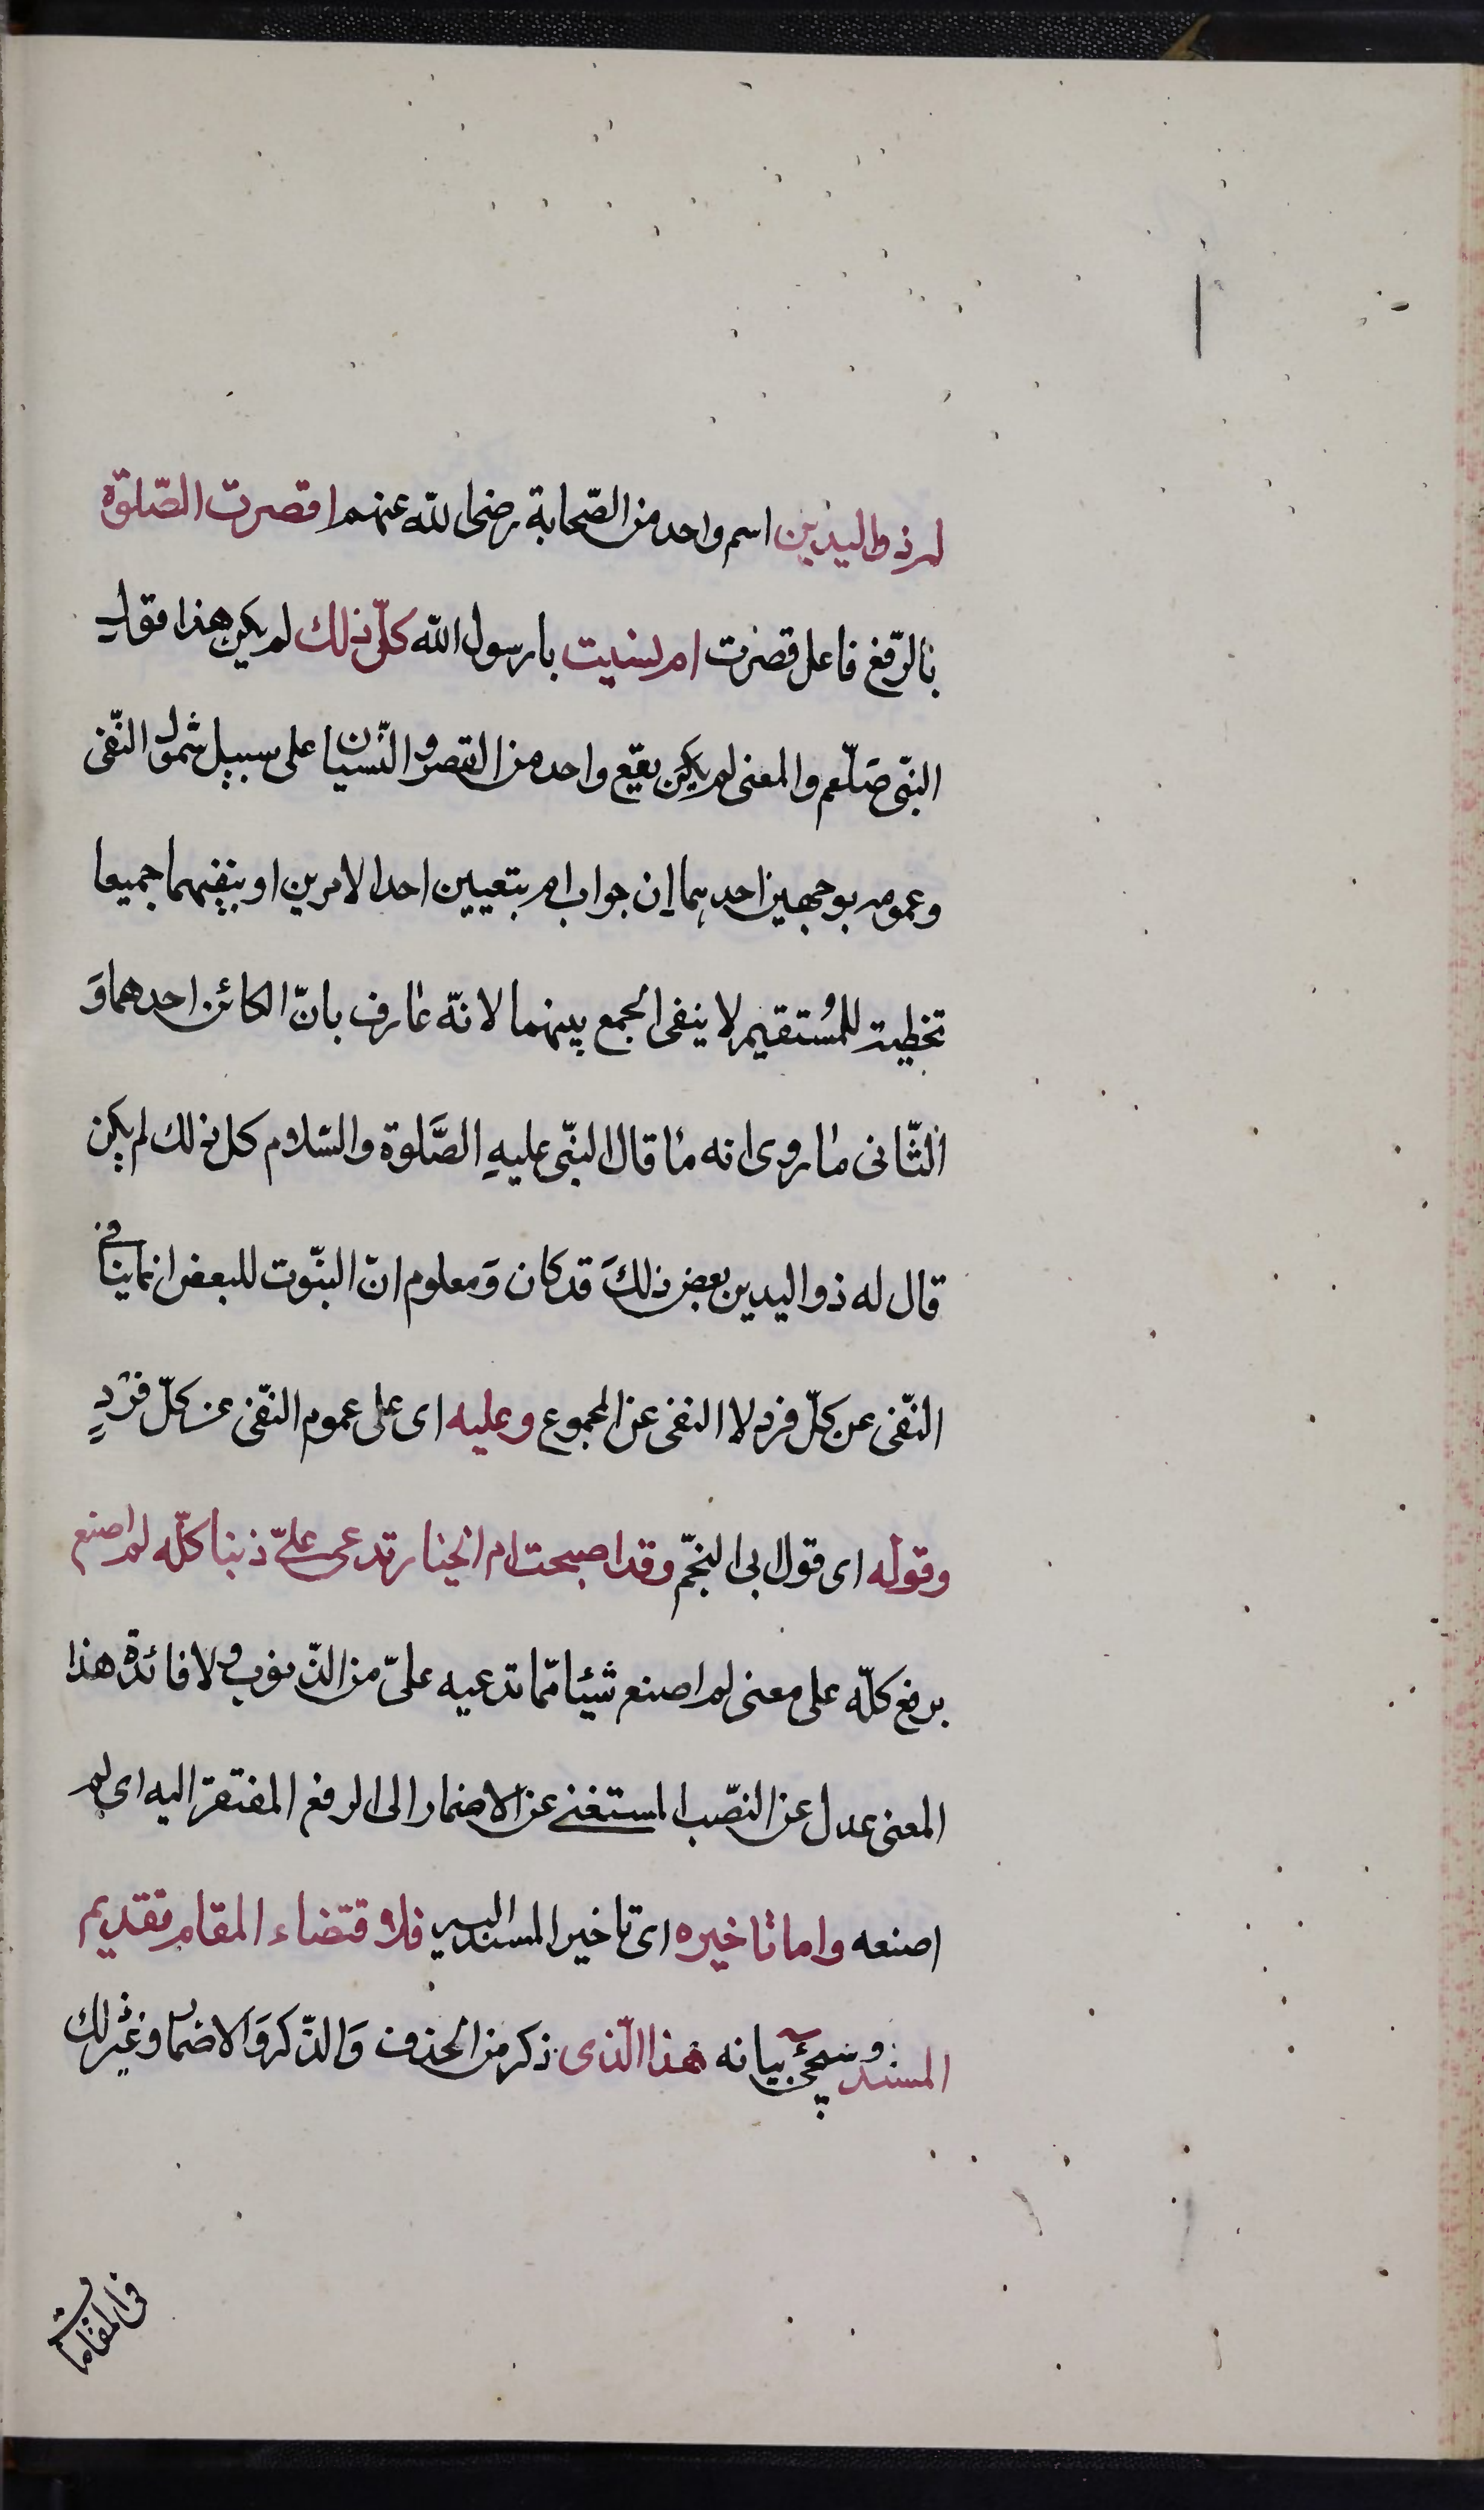 له ذو اليدين اسم واحد من الصّحابة رضى الله عنهم اقصرت الصّلوة
بالرّفع فاعل قصرت ام نسيت يا رسول الله كلّ ذلك لم يكن هذا قول
النّبى صلّعم والمعنى لم يكن يقع واحد من القصر والنّسيان على سبيل شمول النّفى
وعمومه بوجهين احدهما ان جواب ام بتعيين احد الامرين او بنفيهما جميعا
تخطية للمُستقيم لا ينفى الجمع بينهما لانّه عارف بانّ الكائن احدهما وَ
الثّانى ما روى انه ما قال النبّى عليهِ الصَّلوة والسّلام كل ذلك لم يكن
قال له ذو اليدين بعض ذلكَ قد كان وَمعلوم انّ الثبوت للبعض انما ينافى
النّفى عن كلّ فرد لا النفى عن المجموع وعليه اى على عموم النّفى عن كلّ فردٍ
وقوله اى قول ابى النجّم وقد اصبحت ام الخيار تدعى علىّ ذنبا كلّه لم اصنع
برفع كلّه على معنى لم اصنع شيئا ممّا تدعيه علىّ من الذّنوب ولافائدة هذا
المعنى عدل عن النصّب المستغنى عن الاضمار الى الرفع المفتقر اليه اى لم
اصنعه واما تاخيره اى تاخير المسند اليه فلاقتضاء المقام تقديم
المسند وسيجئ بيانه هذا الّذى ذكر من الحذف وَالذّكر وَالاضمار وغير ذلك
فى المقامات